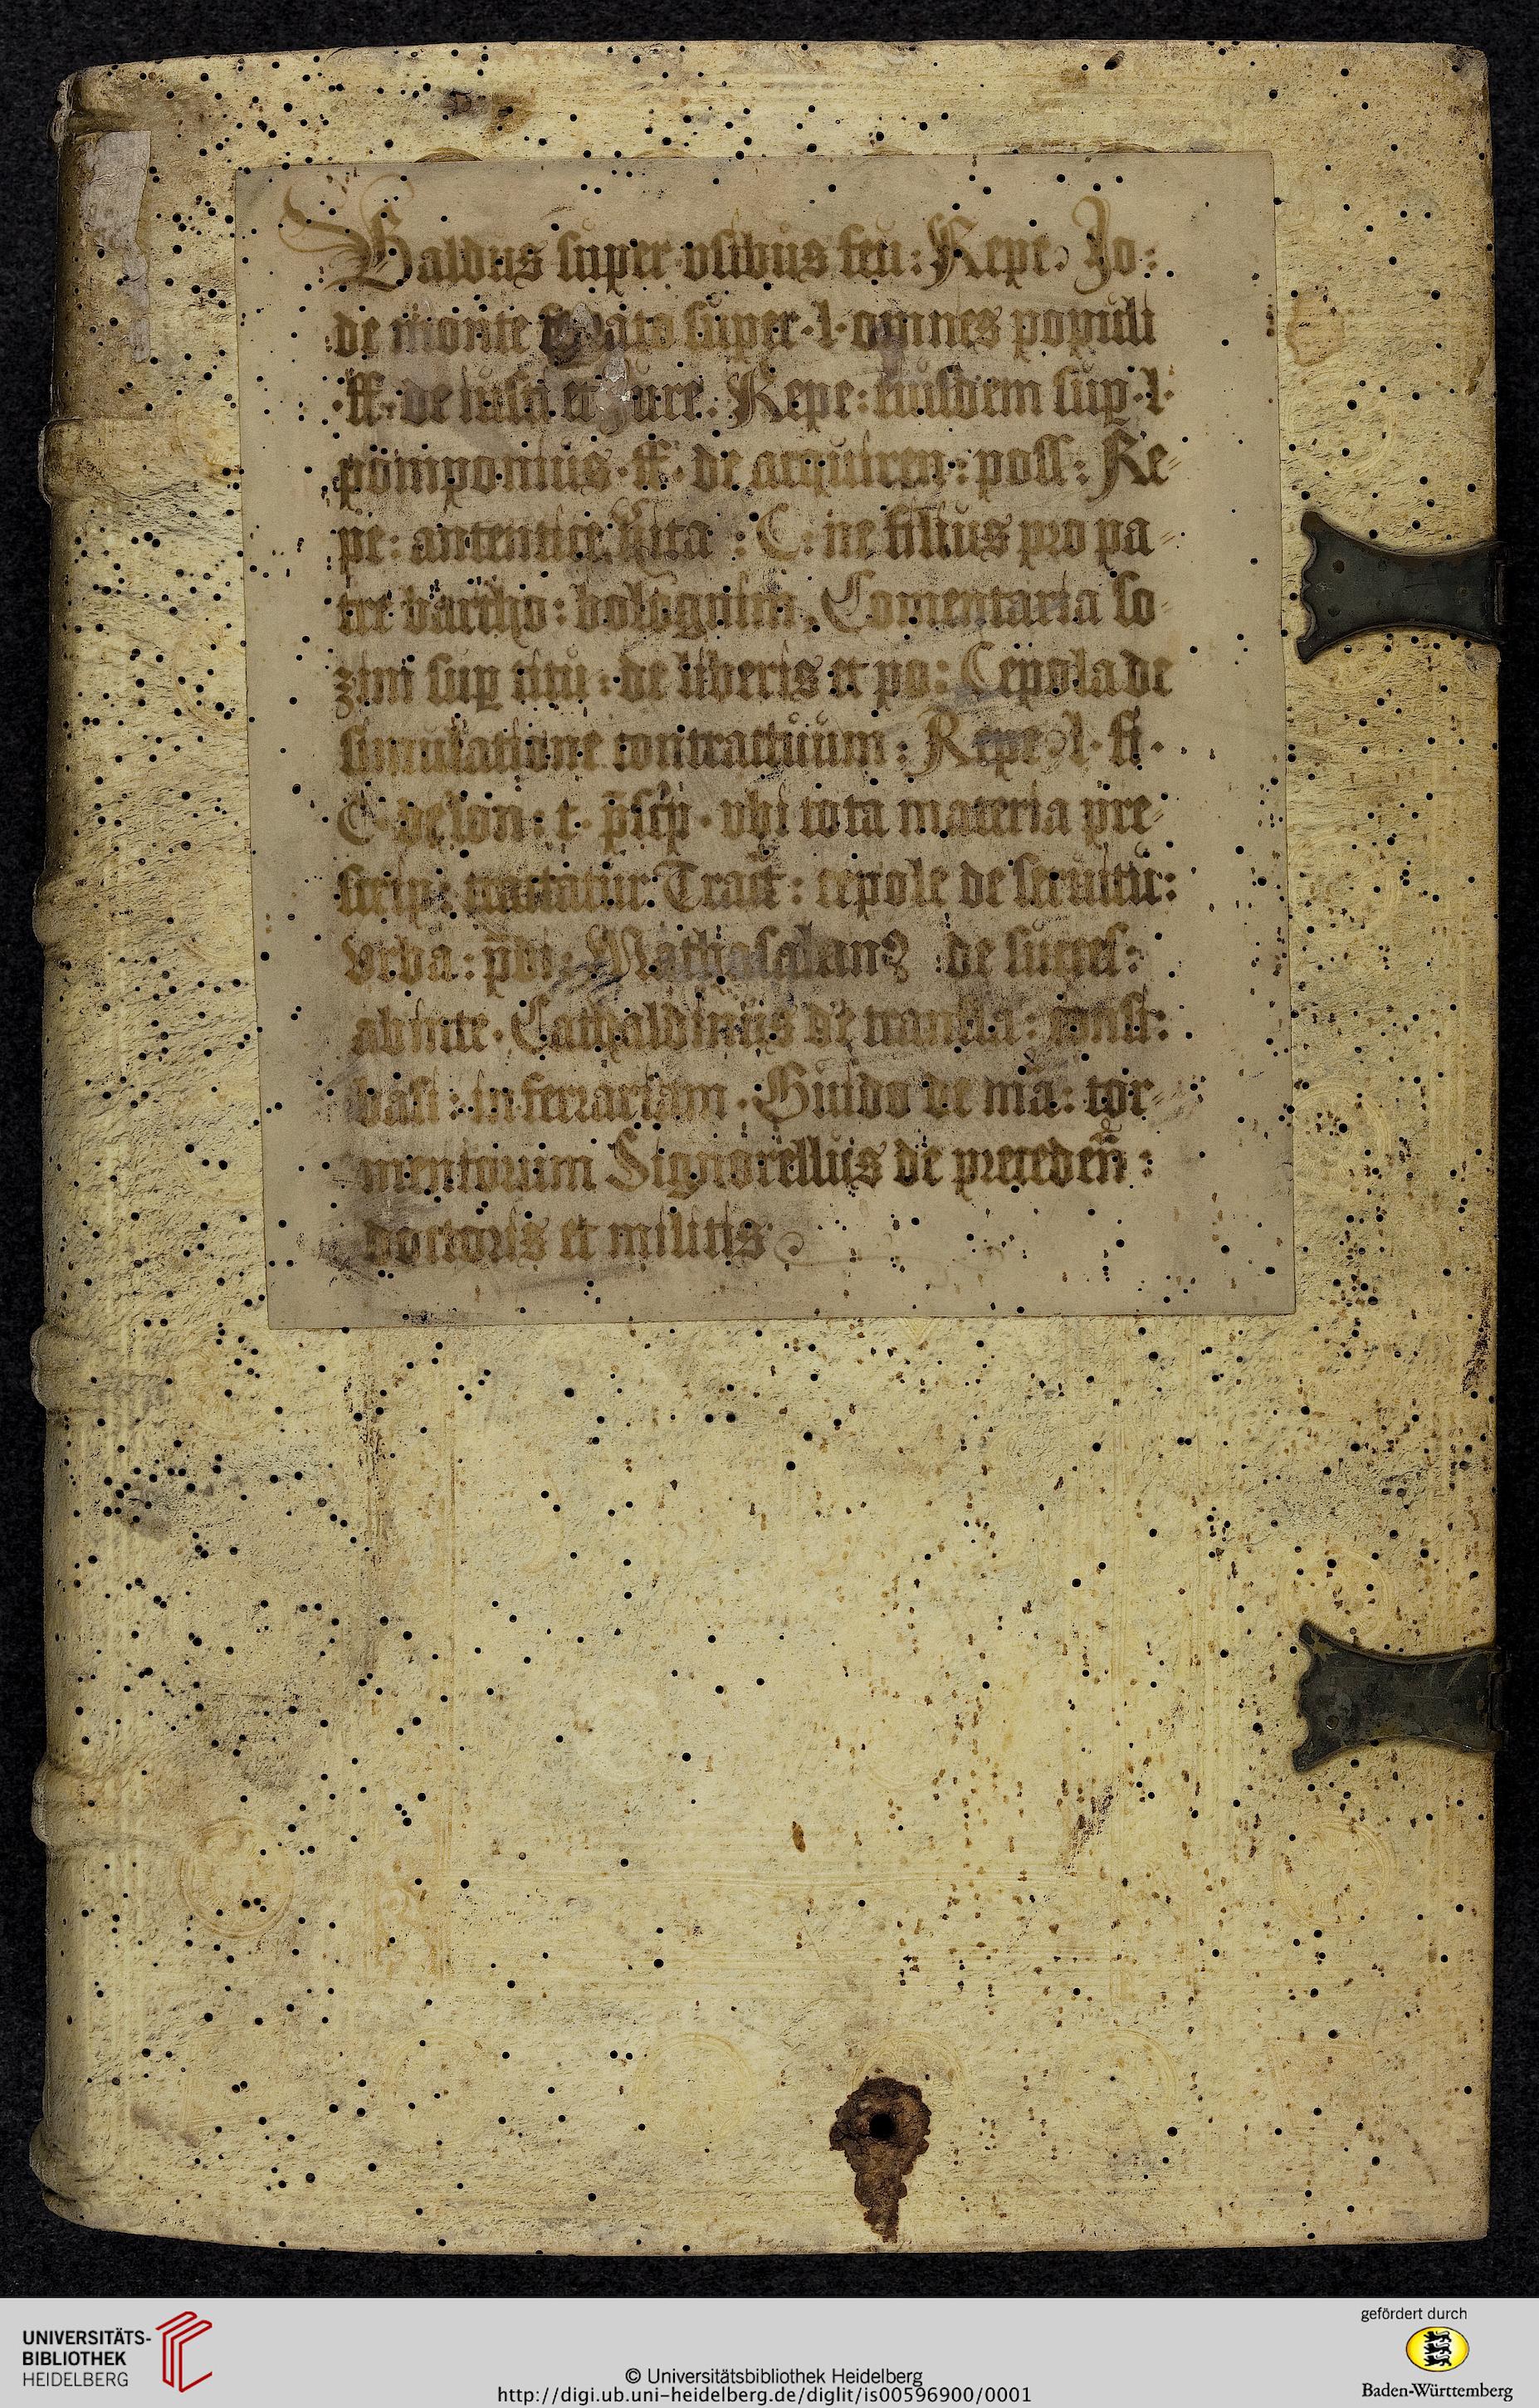 Baldus super vsibus feu: Repe. Jo:
de monte super · l · omnes populi
· ff · de iusti et Jure. Repe: eiusdem sup · l ·
pomponius · ff · de acquiren: poss: Re-
pe: autentice : C: ne filius pro pa-
tre bartho: bolognini, Comentaria so-
zini sup titu: de liberis et po: Cepola de
simulatione contractuum: Repe l · fi ·
C · de lon: t · p̄scp · vbi tota materia pre-
scrip: tractatur. Tract: cepole de seruitu:
vrba: p̄di: de succes:
abinte · Cathaldinus de transla: consi:
basi: in ferrariam · Guido de mā: tor-
mentorum Signorellus de preceden̄:
doctoris et militis
UNIVERSITÄTS-
BIBLIOTHEK
HEIDELBERG
© Universitätsbibliothek Heidelberg
http://digi.ub.uni-heidelberg.de/diglit/is00596900/0001
gefördert durch
Baden-Württemberg